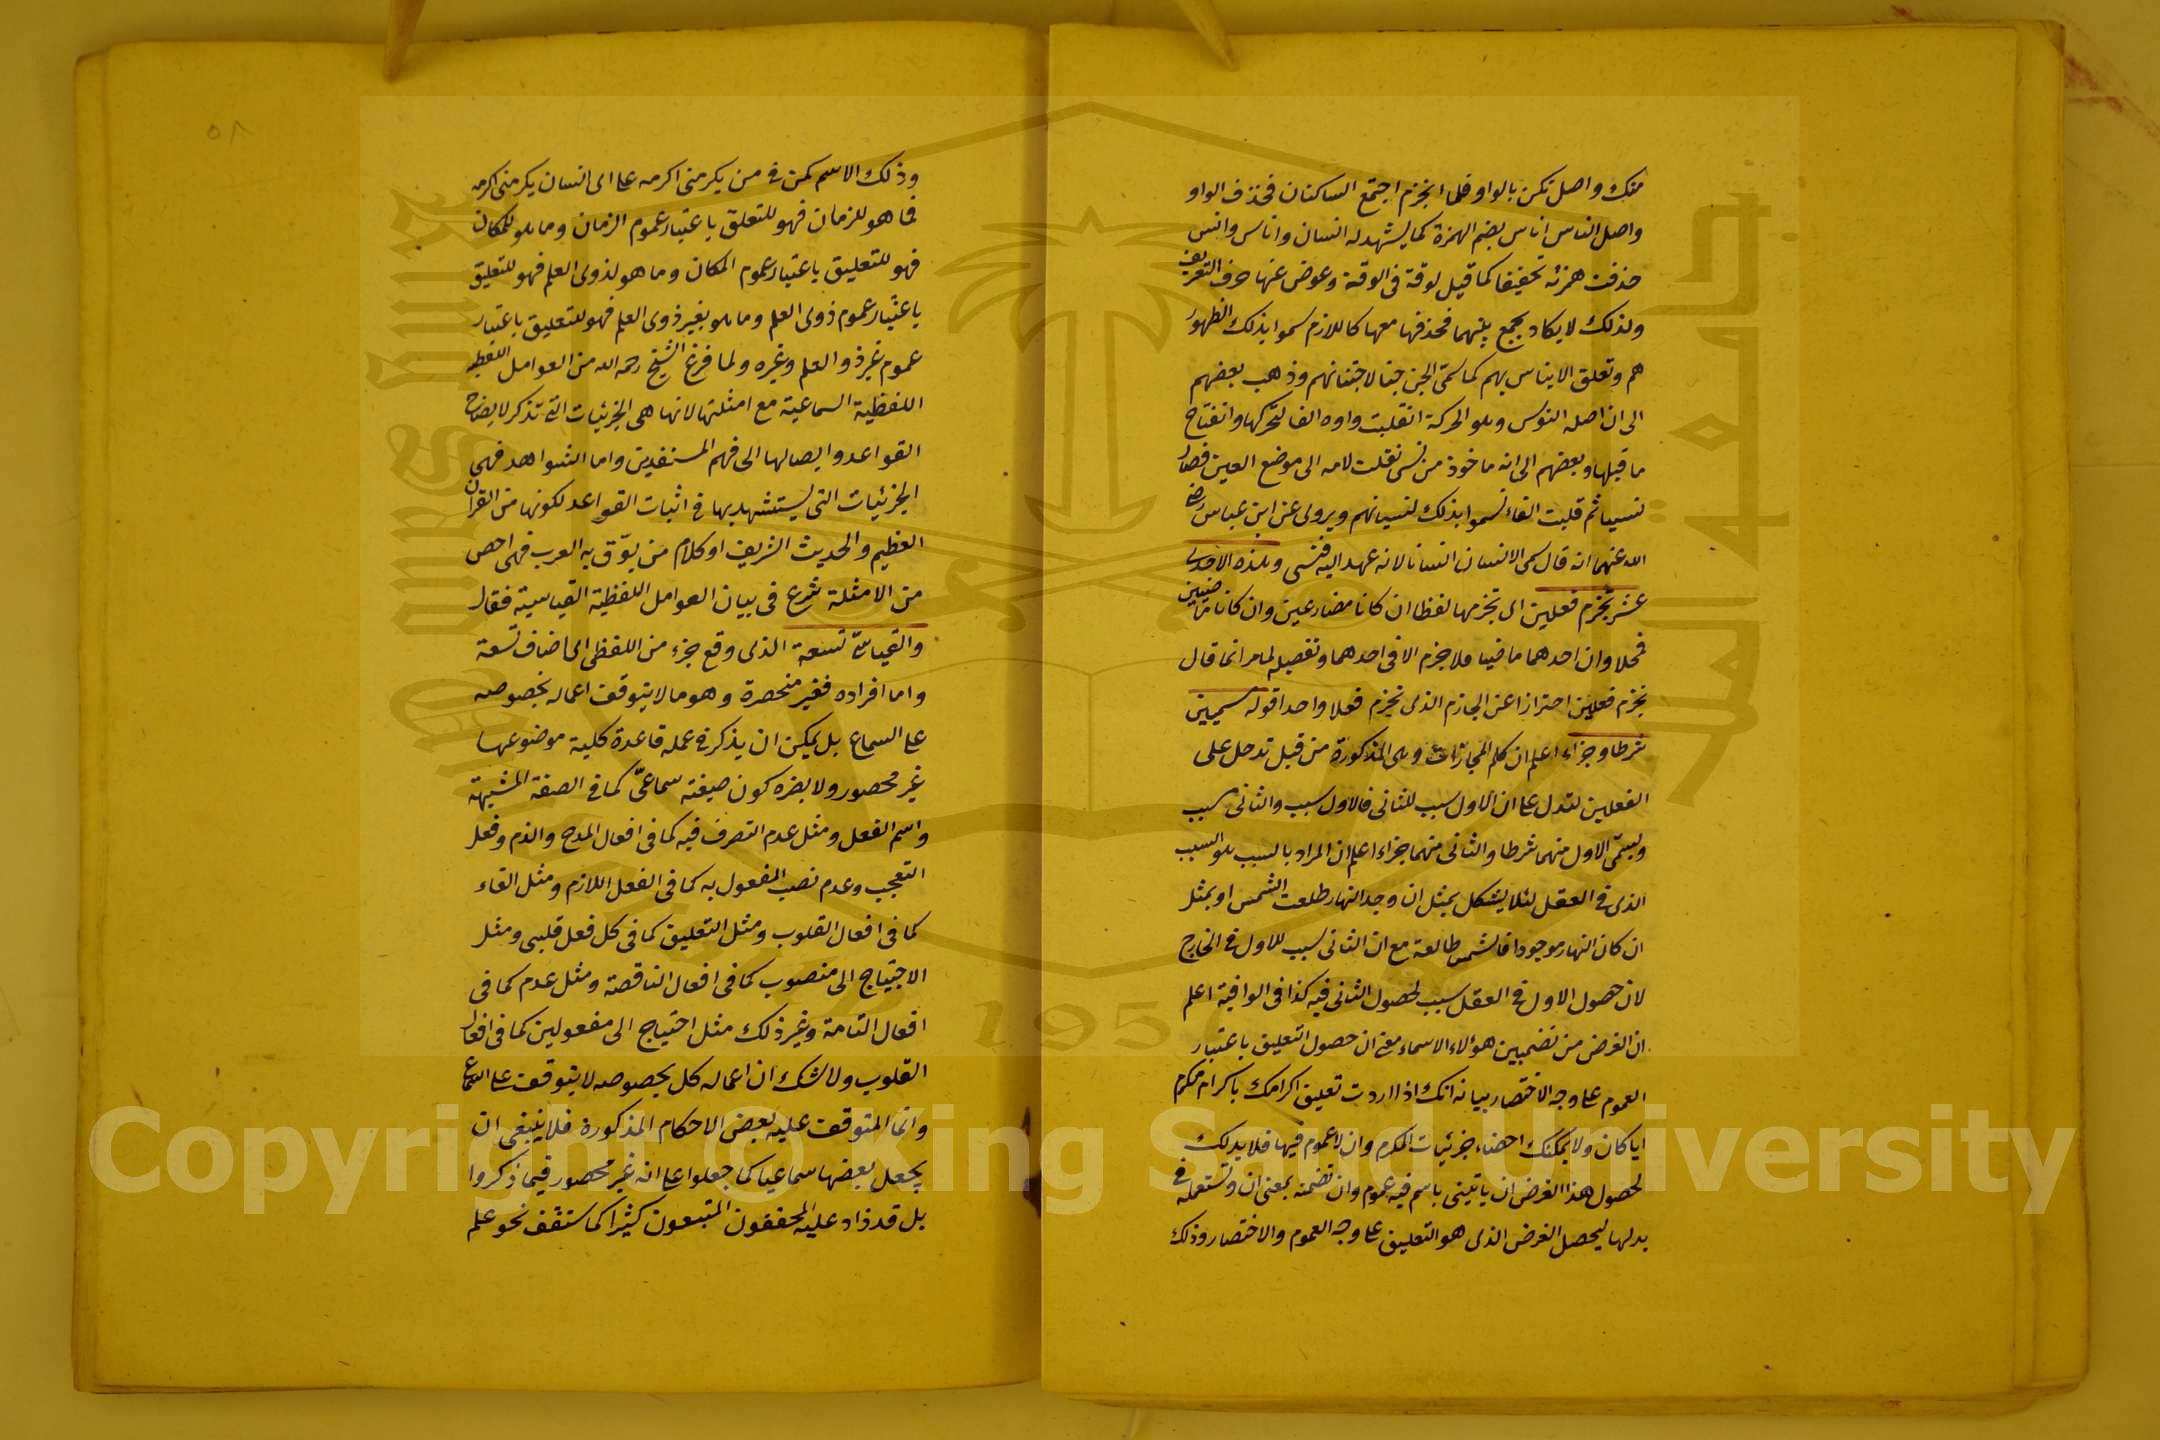 منك واصل تكن بالواو فلما انجزم اجتمع الساكنان فحذف الواو
واصل الناس اناس بضم الهمزة كما يشهد له انسان واناس وانس
حذفت همزته تخفيفا كما قيل لوقة فى الوقة وعوض عنها حرف التعريف
ولذلك لا يكاد يجمع بينهما فحذفها معها كاللازم سموا بذلك لظهور
هم وتعلق الايناس بهم كما سمى الجن جنا لاجتنانهم وذهب بعضهم
الى ان اصله النوس وهو الحركة انقلبت واوه الفا لتحركها وانفتاح
ما قبلها وبعضهم الى انه ماخوذ من نسى نقلت لامه الى موضع العين فصار
نسيا ثم قلبت الفا سموا بذلك لنسيانهم ويروى عن ابن عباس رضى
الله عنهما انه قال سمى الانسان انسانا لانه عهد اليه فنسى وهذه الاحدى
عشر تجزم فعلين اى تجزمها لفظا ان كانا مضارعين وان كانا ماضيين
فمحلا وان احدهما ماضيا فلا جزم الا فى احدهما وتفصيله لما مر انما قال
تجزم فعلين احترازا عن الجازم الذى يجزم فعلا واحدا قوله مسميين
شرطا وجزاء اعلم ان كلم المجازات وهى المذكورة من قبل تدخل على
الفعلين لتدل على ان الاول سبب للثانى فالاول سبب والثانى مسبب
ويسمى الاول منهما شرطا والثانى منهما جزاء اعلم ان المراد بالسبب هو السبب
الذى فى العقل لئلا يشكل بمثل ان وجد النهار طلعت الشمس او بمثل
ان كان النهار موجودا فالشمس طالعة مع ان الثانى سبب للاول فى الخارج
لان حصول الاول فى العقل سبب لحصول الثانى فيه كذا فى الوافية اعلم
ان الغرض من تضمين هؤلاء الاسماء معنى ان حصول التعليق باعتبار
العموم على وجه الاختصار بيانه انك اذا اردت تعليق اكرامك باكرام مكرم
ايا كان ولا يمكنك احصاء جزئيات المكرم وان لا عموم فيها فلا بد لك
لحصول هذا الغرض ان ياتينى باسم فيه عموم وان تضمنه بمعنى ان وتستعمله فى
بدلها ليحصل الغرض الذى هو التعليق على وجه العموم والاختصار وذلك
٥٨
وذلك الاسم كمن فى من يكرمنى اكرمه على اى انسان يكرمنى اكرمه
فما هو للزمان فهو للتعلق باعتبار عموم الزمان وما هو للمكان
فهو للتعليق باعتبار عموم المكان وما هو لذوى العلم فهو للتعليق
باعتبار عموم ذوى العلم وما هو بغير ذوى العلم فهو للتعليق باعتبار
عموم غير ذو العلم وغيره ولما فرغ الشيخ رحمه الله من العوامل اللفظية
اللفظية السماعية مع امثلتها لانها هى الجزئيات التى تذكر لايضاح
القواعد وايصالها الى فهم المستفدين واما الشواهد فهى
الجزئيات التى يستشهد بها فى اثبات القواعد لكونها من القران
العظيم والحديث الشريف او كلام من يوثق به العرب فهى اخص
من الامثلة شرع فى بيان العوامل اللفظية القياسية فقال
والقياسية تسعة الذى وقع جزء من اللفظى اى اضاف تسعة
واما افراده فغير منحصرة وهو ما لا يتوقف اعماله بخصوصه
على السماع بل يمكن ان يذكر فى عمله قاعدة كلية موضوعها
غير محصور ولا يضره كون صيغته سماعى كما فى الصفة المشبهة
واسم الفعل ومثل عدم التصرف فيه كما فى افعال المدح والذم وفعل
التعجب وعدم نصب المفعول به كما فى الفعل اللازم ومثل الغاء
كما فى افعال القلوب ومثل التعليق كما فى كل فعل قلبى ومثل
الاحتياج الى منصوب كما فى افعال الناقصة ومثل عدم كما فى
افعال التامة وغير ذلك مثل احتياج الى مفعولين كما فى افعال
القلوب ولا شك ان اعماله كل بخصوصه لا يتوقف على السماع
وانما المتوقف عليه بعض الاحكام المذكورة فلا ينبغى ان
يجعل بعضها سماعيا كما جعلوا على انه غير محصور فيما ذكروا
بل قد زاد عليه المحققون المتبعون كثيرا كما ستقف نحو علم
Copyright © King Saud University
1957